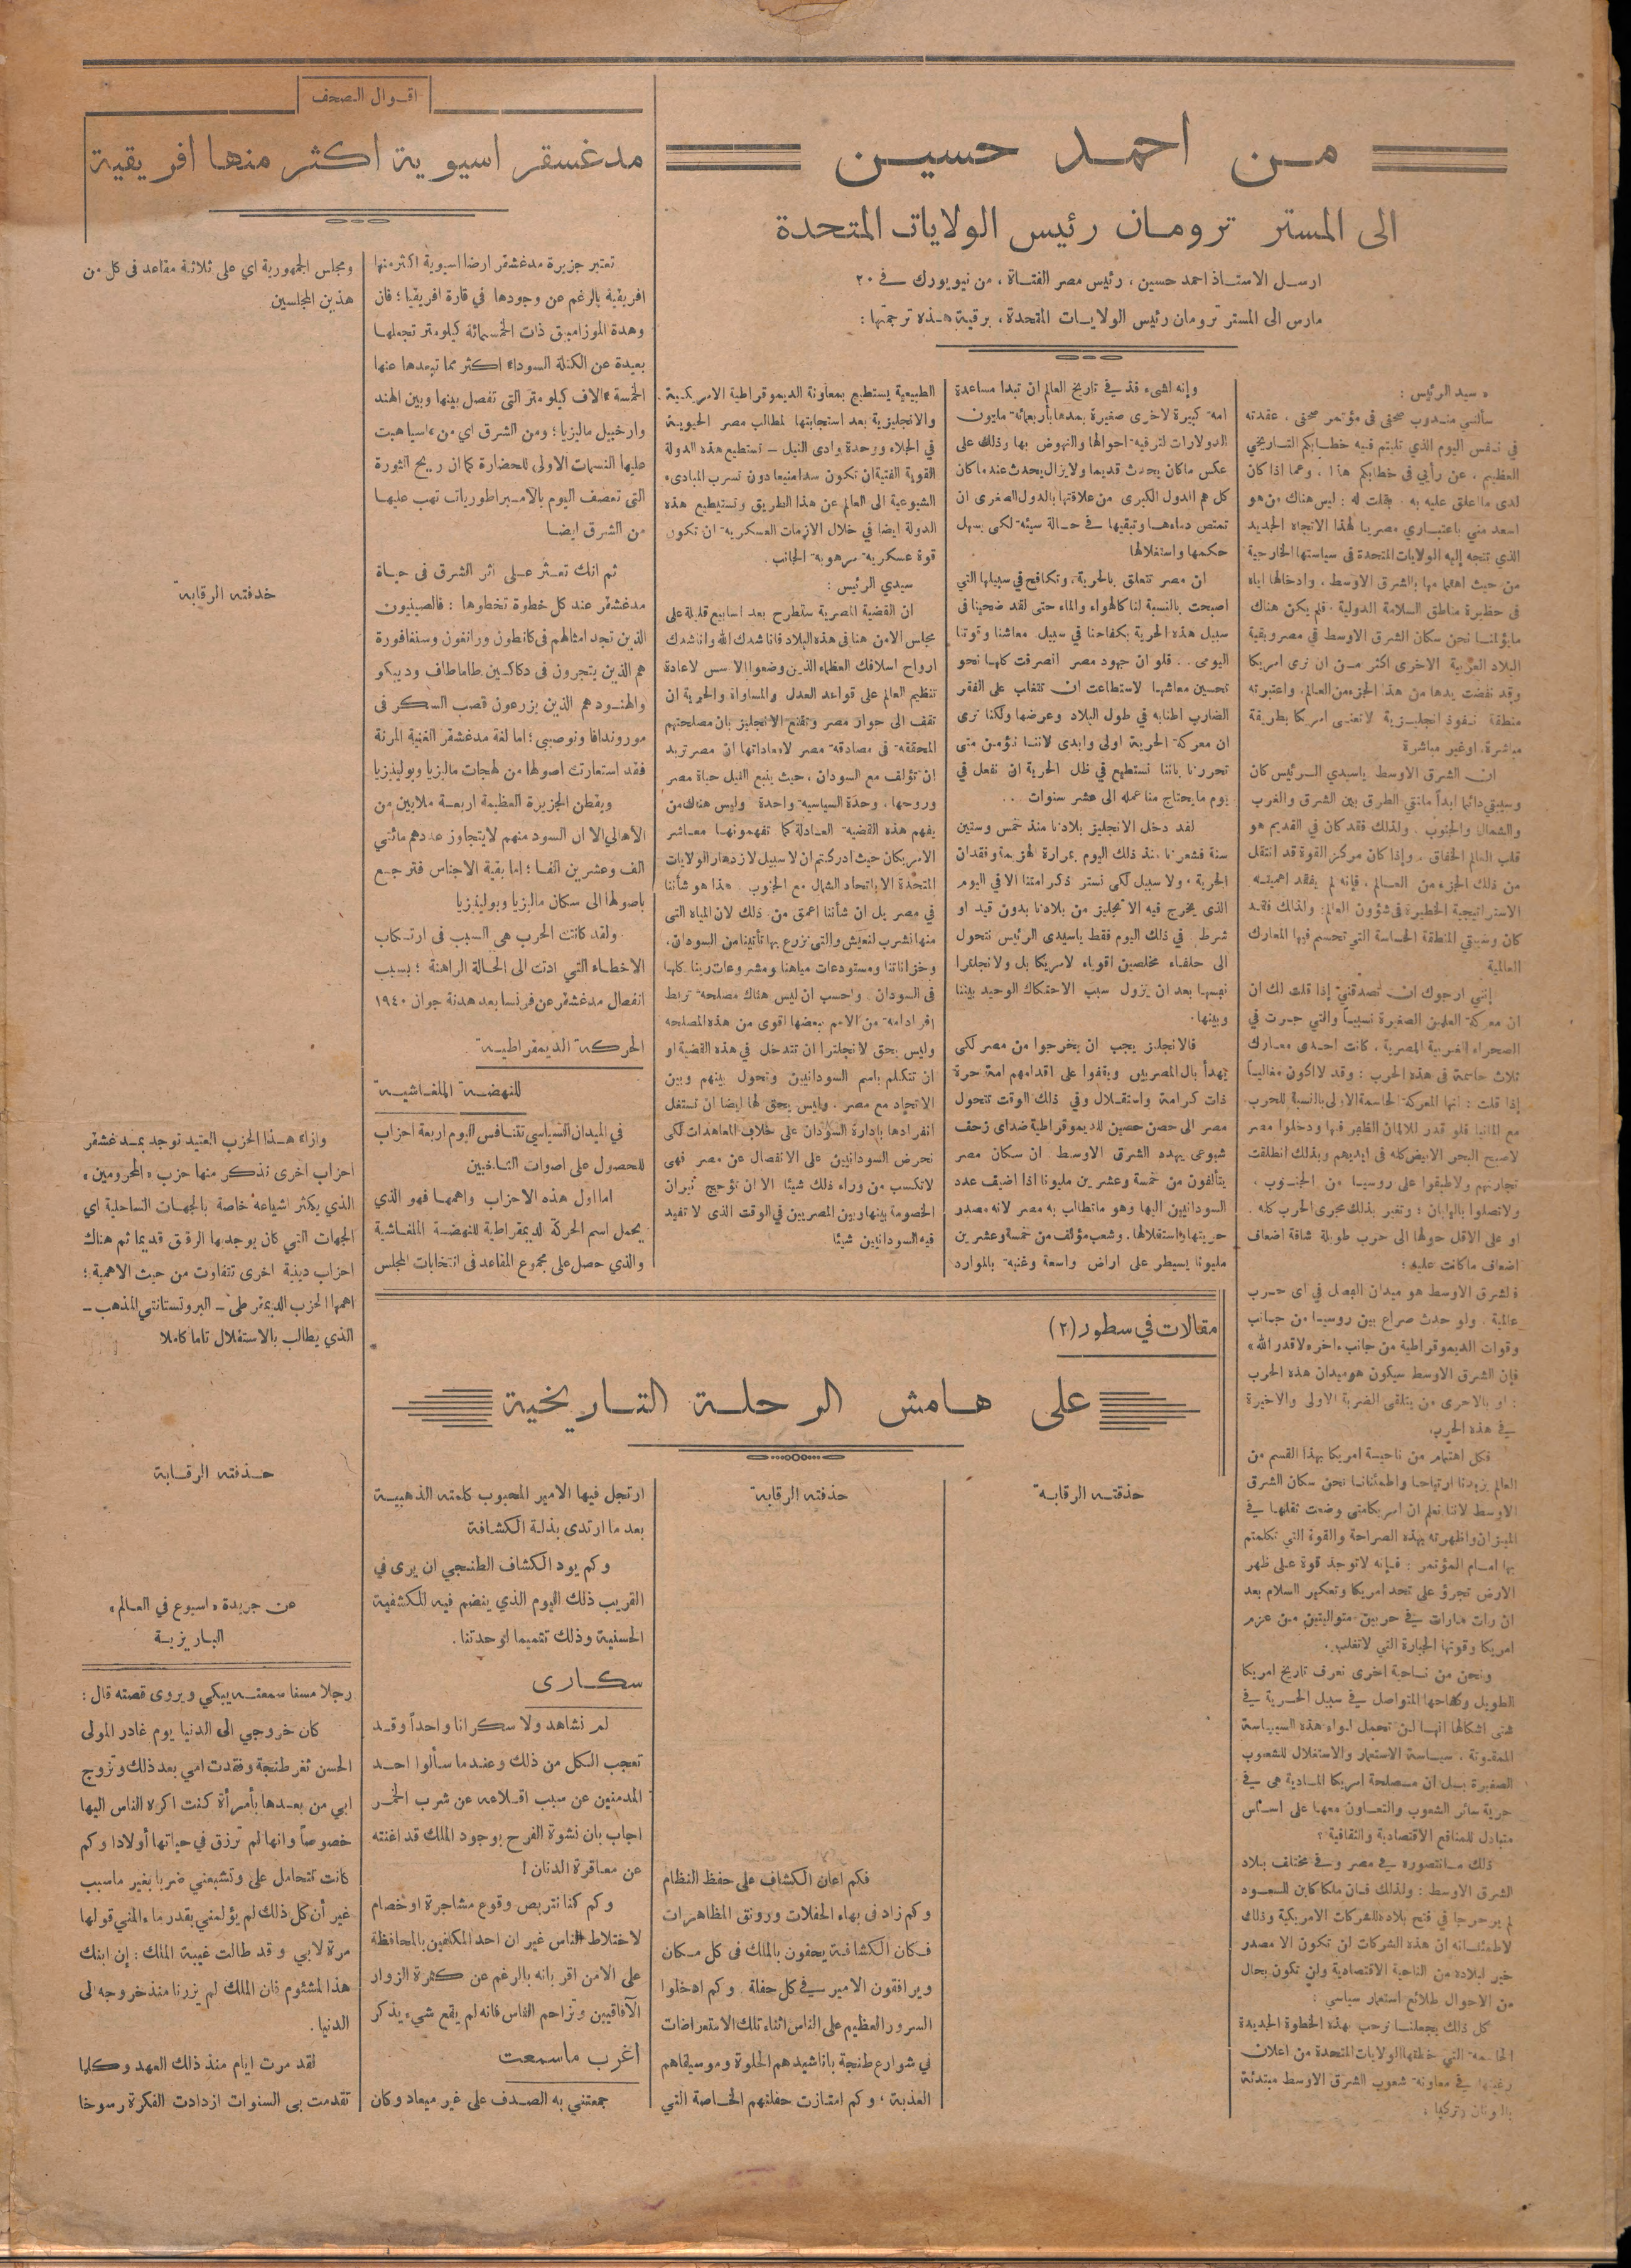 من احمد حسين
الى المستر ترومان رئيس الولايات المتحدة
ارسل الاستاذ احمد حسين ، رئيس مصر الفتاة ، من نيويورك في ٢٠
مارس الى المستر ترومان رئيس الولايات المتحدة ، برقية هذه ترجمتها :
« سيد الرئيس :
سألني مندوب صحفي في مؤتمر صحفي ، عقدته
في نفس اليوم الذي تليتم فيه خطابكم التاريخي
العظيم ، عن رأيي في خطابكم هذا ، وعما اذا كان
لدى ما اعلق عليه به . فقلت له : ليس هناك من هو
اسعد مني باعتباري مصريا لهذا الاتجاه الجديد
الذي تتجه إليه الولايات المتحدة في سياستها الخارجية
من حيث اهتمامها بالشرق الاوسط ، وادخالها اياه
في حظيرة مناطق السلامة الدولية . فلم يكن هناك
مايؤلمنا نحن سكان الشرق الاوسط في مصر وبقية
البلاد العربية الاخرى اكثر من ان نرى امريكا
وقد نفضت يدها من هذا الجزء من العالم ، واعتبرته
منطقة نفوذ انجليزية لاتعنى امريكا بطريقة
مباشرة . اوغير مباشرة
ان الشرق الاوسط ياسيدي الرئيس كان
وسيبقى دائما ابداً ملتقى الطرق بين الشرق والغرب
والشمال والجنوب . ولذلك فقد كان في القديم هو
قلب العالم الخفاق . وإذا كان مركز القوة قد انتقل
من ذلك الجزء من العالم ، فإنه لم يفقد اهميته
الاستراتيجية الخطيرة في شؤون العالم : ولذلك فقد
كان وسيبقى المنطقة الحساسة التي تحسم فيها المعارك
العالمية
إنني ارجوك ان تصدقني إذا قلت لك ان
ان معركة العلمين الصغيرة نسبياً والتي جرت في
الصحراء الغربية المصرية ، كانت احدى معارك
ثلاث حاسمة في هذه الحرب : وقد لا اكون مغالياً
إذا قلت : انها المعركة الحاسمة الاولى بالنسبة للحرب
مع المانيا فلو قدر للالمان الظفر فيها ودخلوا مصر
لاصبح البحر الابيض كله في ايديهم وبذلك انطلقت
تجارتهم ولاطبقوا على روسيا من الجنوب ،
ولاتصلوا باليابان : وتغير بذلك مجرى الحرب كله .
او على الاقل حولها الى حرب طويلة شاقة اضعاف
اضعاف ماكانت عليه :
فالشرق الاوسط هو ميدان الفصل في اي حرب
عالمية . ولو حدث صراع بين روسيا من جانب
وقوات الديموقراطية من جانب ءاخر « لا قدر الله »
فإن الشرق الاوسط سيكون هو ميدان هذه الحرب
: او بالاحرى من يتلقى الضربة الاولى والاخيرة
في هذه الحرب .
فكل اهتمام من ناحية امريكا بهذا القسم من
العالم يزيدنا ارتياحا واطمئنانا نحن سكان الشرق
الاوسط لاننا نعلم ان امريكا متى وضعت ثقلها في
الميزان واظهرته بهذه الصراحة والقوة التي تكلمتم
بها امام المؤتمر : فإنه لاتوجد قوة على ظهر
الارض تجرؤ على تحد امريكا وتعكير السلام بعد
ان رات مارات في حربين متواليتين من عزم
امريكا وقوتها الجبارة التي لاتغلب .
ونحن من ناحية اخرى نعرف تاريخ امريكا
الطويل وكفاحها المتواصل في سبيل الحرية في
شتى اشكالها انها لن تحمل لواء هذه السياسة
الممقوتة . سياسة الاستعمار والاستغلال للشعوب
الصغيرة بل ان مصلحة امريكا المادية هي في
حرية سائر الشعوب والتعاون معها على اساس
متبادل للمنافع الاقتصادية والثقافية ؟
ذلك مانتصوره في مصر وفي مختلف بلاد
الشرق الاوسط : ولذلك فان ملكا كابن السعود
لم ير حرجا في فتح بلاده للشركات الامريكية وذلك
لاطمئنانه ان هذه الشركات لن تكون الا مصدر
خير لبلاده من الناحية الاقتصادية ولن تكون بحال
من الاحوال طلائع استعمار سياسي :
كل ذلك يجعلنا نرحب بهذه الخطوة الجديدة
الحاسمة التي خطتها الولايات المتحدة من اعلان
رغبتها في معاونة شعوب الشرق الاوسط مبتدئة
باليونان وتركيا .
وإنه لشيء فذ في تاريخ العالم ان تبدا مساعدة
امة كبيرة لاخرى صغيرة بمدها بأربعمائة مليون
الدولارات لترفيه احوالها والنهوض بها وذلك على
عكس ماكان يحدث قديما ولايزال يحدث عند ما كان
كل هم الدول الكبرى من علاقتها بالدول الصغرى ان
تمتص دماءها وتبقيها في حالة سيئة لكي يسهل
حكمها واستغلالها
ان مصر تتعلق بالحرية ، وتكافح في سبيلها التي
اصبحت بالنسبة لنا كالهواء والماء حتى لقد ضحينا في
سبيل هذه الحرية بكفاحنا في سبيل معاشنا وقوتنا
اليومي .. فلو ان جهود مصر انصرفت كلها نحو
تحسين معاشها لاستطاعت ان تتغلب على الفقر
الضارب اطنابه في طول البلاد وعرضها ولكنا نرى
ان معركة الحرية اولى وابدى لاننا نؤمن متى
تحررنا باننا نستطيع في ظل الحرية ان نفعل في
يوم مايحتاج منا عمله الى عشر سنوات ...
لقد دخل الانجليز بلادنا منذ خمس وستين
سنة فشعرنا منذ ذلك اليوم بمرارة الهزيمة وفقدان
الحرية ، ولا سبيل لكي نستر ذكر امتنا الا في اليوم
الذي يخرج فيه الانجليز من بلادنا بدون قيد او
شرط . في ذلك اليوم فقط ياسيدي الرئيس نتحول
الى حلفاء مخلصين اقوياء لامريكا بل ولانجلترا
نفسها بعد ان يزول سبب الاحتكاك الوحيد بيننا
وبينها .
فالانجليز يجب ان يخرجوا من مصر لكي
يهدأ بال المصريين ويقفوا على اقدامهم امة حرة
ذات كرامة واستقلال وفي ذلك الوقت تتحول
مصر الى حصن حصين للديموقراطية ضد اي زحف
شيوعي يهدد الشرق الاوسط . ان سكان مصر
يتألفون من خمسة وعشرين مليونا اذا اضيف عدد
السودانيين اليها وهو ماتطالب به مصر لانه مصدر
حريتها واستقلالها . وشعب مؤلف من خمسة وعشرين
مليونا يسيطر على اراض واسعة وغنية بالموارد
الطبيعية يستطيع بمعاونة الديموقراطية الامريكية
والانجليزية بعد استجابتها لمطالب مصر الحيوية
في الجلاء ووحدة وادى النيل – تستطيع هذه الدولة
القوية الفتية ان تكون سدا منيعا دون تسرب المبادىء
الشيوعية الى العالم عن هذا الطريق وتستطيع هذه
الدولة ايضا في خلال الازمات العسكرية ان تكون
قوة عسكرية مرهوبة الجانب .
سيدي الرئيس :
ان القضية المصرية ستطرح بعد اسابيع قليلة على
مجلس الامن هنا في هذه البلاد فانا شدك الله وانا شدك
ارواح اسلافك العظماء الذين وضعوا الاسس لاعادة
تنظيم العالم على قواعد العدل والمساواة والحرية ان
تقف الى جوار مصر وتقنع الانجليز بان مصلحتهم
المحققة في مصادقة مصر لامعاداتها ان مصر تريد
ان تؤلف مع السودان ، حيث ينبع النيل حياة مصر
وروحها ، وحدة السياسية واحدة وليس هناك من
يفهم هذه القضية العادلة كما تفهمونها معاشر
الامريكان حيث ادركتم ان لا سبيل لازدهار الولايات
المتحدة الا باتحاد الشمال مع الجنوب . هذا هو شأننا
في مصر بل ان شأننا اعمق من ذلك لان المياه التي
منها نشرب لنعيش والتي نزرع بها تأتينا من السودان .
وخزاناتنا ومستودعات مياهنا ومشروعات رينا كلها
في السودان . واحسب ان ليس هناك مصلحة تربط
افراد امة من الامم ببعضها اقوى من هذه المصلحة
وليس بحق لانجلترا ان تتدخل في هذه القضية او
ان تتكلم باسم السودانيين وتحول بينهم وبين
الاتحاد مع مصر . وليس يحق لها ايضا ان تستغل
انفرادها بإدارة السودان على خلاف المعاهدات لكي
تحرض السودانيين على الانفصال عن مصر فهي
لاتكسب من وراء ذلك شيئا الا ان تؤجج نيران
الخصومة بينها وبين المصريين في الوقت الذي لا تفيد
فيه السودانيين شيئا
اقوال الصحف
مدغسقر اسيوية اكثر منها افريقية
تعتبر جزيرة مدغشقر ارضا اسيوية اكثر منها
افريقية بالرغم عن وجودها في قارة افريقيا ؛ فان
وهدة الموزامبيق ذات الخمسمائة كيلومتر تجعلها
بعيدة عن الكتلة السوداء اكثر مما تبعدها عنها
الخمسة ءالاف كيلومتر التي تفصل بينها وبين الهند
وارخبيل ماليزيا ؛ ومن الشرق اي من ءاسيا هبت
عليها النسمات الاولى للحضارة كما ان ريح الثورة
التي تعصف اليوم بالامبراطوريات تهب عليها
من الشرق ايضا
ثم انك تعثر على اثر الشرق في حياة
مدغشقر عند كل خطوة تخطوها : فالصينيون
الذين تجد امثالهم في كانطون ورانغون وسنغافورة
هم الذين يتجرون في دكاكين طاماطاف ودييكو
والهنود هم الذين يزرعون قصب السكر في
موروندافا ونوصيبي ؛ اما لغة مدغشقر الغنية المرنة
فقد استعارت اصولها من لهجات ماليزيا وبولينيزيا
ويقطن الجزيرة العظيمة اربعة ملايين من
الأهالي الا ان السود منهم لايتجاوز عددهم مائتي
الف وعشرين الفا ؛ اما بقية الاجناس فترجع
باصولها الى سكان ماليزيا وبولينيزيا
ولقد كانت الحرب هي السبب في ارتكاب
الاخطاء التي ادت الى الحالة الراهنة ؛ بسبب
انفصال مدغشقر عن فرنسا بعد هدنة جوان ١٩٤٠
الحركة الديمقراطية
للنهضة الملغاشية
في الميدان السياسي تتنافس اليوم اربعة احزاب
للحصول على اصوات الناخبين
اما اول هذه الاحزاب واهمها فهو الذي
يحمل اسم الحركة الديمقراطية للنهضة الملغاشية
والذي حصل على مجموع المقاعد في انتخابات المجلس
ومجلس الجمهورية اي على ثلاثة مقاعد في كل من
هذين المجلسين
حذفته الرقابة
وازاء هذا الحزب العتيد توجد بمدغشقر
احزاب اخرى نذكر منها حزب « المحرومين »
الذي يكثر اشياعه خاصة بالجهات الساحلية اي
الجهات التي كان يوجد بها الرق قديما ثم هناك
احزاب دينية اخرى تتفاوت من حيث الاهمية ؛
اهمها الحزب الديمقراطي – البروتستانتي المذهب –
الذي يطالب بالاستقلال تاما كاملا
حذفته الرقابة
عن جريدة « اسبوع في العالم »
الباريزية
مقالات في سطور (٢)
على هامش الرحلة التاريخية
حذفته الرقابة
حذفته الرقابة
فكم اعان الكشاف على حفظ النظام
وكم زاد في بهاء الحفلات ورونق المظاهرات
فكان الكشافة يحفون بالملك في كل مكان
ويرافقون الامير في كل حفلة . وكم ادخلوا
السرور العظيم على الناس اثناء تلك الاستعراضات
في شوارع طنجة باناشيدهم الحلوة وموسيقاهم
العذبة ؛ وكم امتازت حفلتهم الخاصة التي
ارتجل فيها الامير المحبوب كلمته الذهبية
بعد ما ارتدى بذلة الكشافة
وكم يود الكشاف الطنجي ان يرى في
القريب ذلك اليوم الذي ينضم فيه للكشفية
الحسنية وذلك تتميما لوحدتنا .
سكارى
لم نشاهد ولا سكرانا واحداً وقد
تعجب الكل من ذلك وعندما سألوا احد
المدمنين عن سبب اقلاعه عن شرب الخمر
اجاب بان نشوة الفرح بوجود الملك قد اغنته
عن معاقرة الدنان !
وكم كنا نتربص وقوع مشاجرة اوخصام
لاختلاط الناس غير ان احد المكلفين بالمحافظة
على الامن اقر بانه بالرغم عن كثرة الزوار
الآفاقيين وتزاحم الناس فانه لم يقع شيء يذكر
أغرب ماسمعت
جمعتني به الصدف على غير ميعاد وكان
رجلا مسنا سمعته يبكي ويروى قصته قال :
كان خروجي الى الدنيا يوم غادر المولى
الحسن ثغر طنجة وفقدت امي بعد ذلك وتزوج
ابي من بعدها بأمرأة كنت اكره الناس اليها
خصوصاً وانها لم ترزق في حياتها أولادا وكم
كانت تتحامل على وتشبعني ضربا بغير ماسبب
غير أن كل ذلك لم يؤلمني بقدر ما ءالمني قولها
مرة لابي وقد طالت غيبة الملك : إن ابنك
هذا لمشئوم فان الملك لم يزرنا منذ خروجه الى
الدنيا .
لقد مرت ايام منذ ذلك العهد وكلما
تقدمت بي السنوات ازدادت الفكرة رسوخا